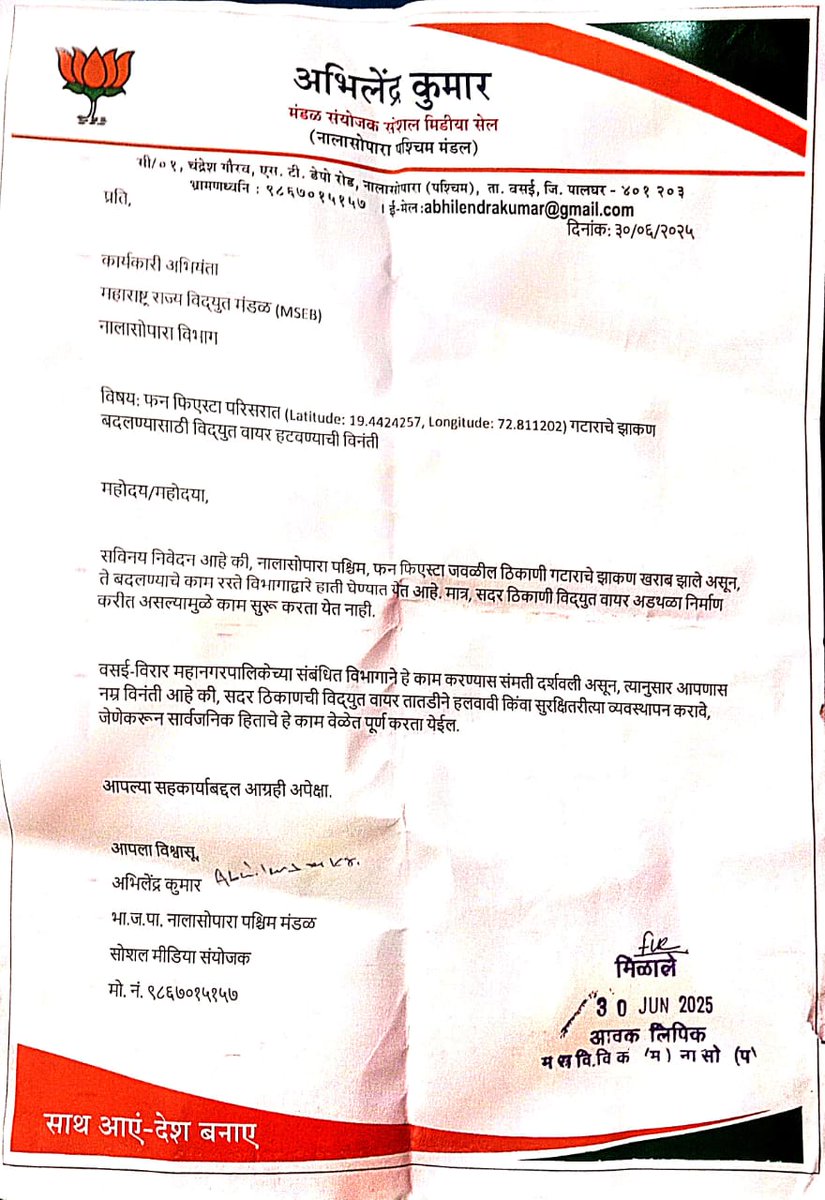 अभिलेंद्र कुमार
मंडळ संयोजक संशल मिडीया सेल
(नालासोपारा पश्चिम मंडल)
सी/०१, चंद्रेश गौरव, एस. टी. डेपो रोड, नालासोपारा (पश्चिम), ता. वसई, जि. पालघर - ४०१ २०३
भ्रामणध्वनि : ९८६७०१५१५७ । ई-मेल :abhilendrakumar@gmail.com
प्रति,
दिनांक: ३०/०६/२०२५
कार्यकारी अभियंता
महाराष्ट्र राज्य विद्युत मंडळ (MSEB)
नालासोपारा विभाग
विषय: फन फिएस्टा परिसरात (Latitude: 19.4424257, Longitude: 72.811202) गटाराचे झाकण
बदलण्यासाठी विद्युत वायर हटवण्याची विनंती
महोदय/महोदया,
सविनय निवेदन आहे की, नालासोपारा पश्चिम, फन फिएस्टा जवळील ठिकाणी गटाराचे झाकण खराब झाले असून,
ते बदलण्याचे काम रस्ते विभागाद्वारे हाती घेण्यात येत आहे. मात्र, सदर ठिकाणी विद्युत वायर अडथळा निर्माण
करीत असल्यामुळे काम सुरू करता येत नाही.
वसई-विरार महानगरपालिकेच्या संबंधित विभागाने हे काम करण्यास संमती दर्शवली असून, त्यानुसार आपणास
नम्र विनंती आहे की, सदर ठिकाणची विद्युत वायर तातडीने हलवावी किंवा सुरक्षितरीत्या व्यवस्थापन करावे,
जेणेकरून सार्वजनिक हिताचे हे काम वेळेत पूर्ण करता येईल.
आपल्या सहकार्याबद्दल आग्रही अपेक्षा.
आपला विश्वासू,
अभिलेंद्र कुमार
भा.ज.पा. नालासोपारा पश्चिम मंडळ
सोशल मीडिया संयोजक
मो. नं. ९८६७०१५१५७
मिळाले
30 JUN 2025
आवक लिपिक
नासो (प)
साथ आएं-देश बनाए